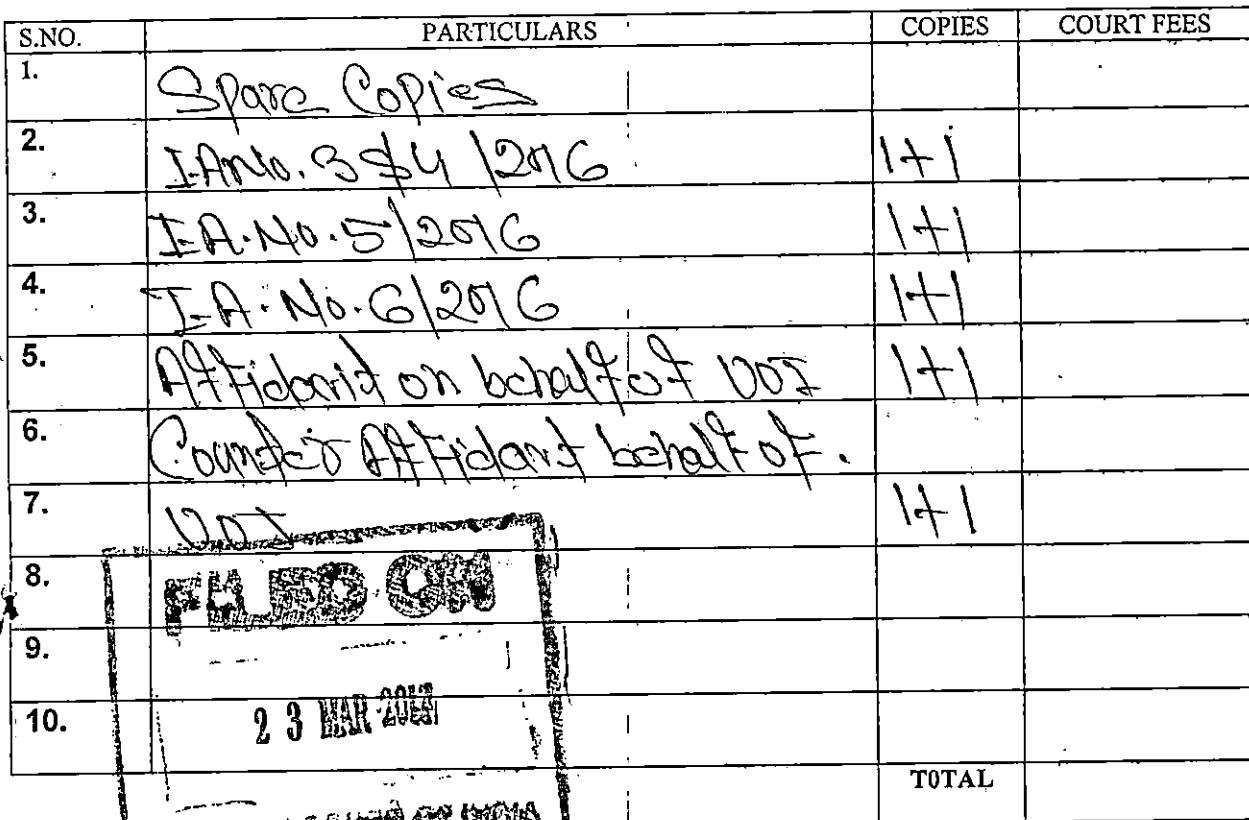 S.NO. PARTICULARS COPIES COURT FEES
1. Spare Copies
2. I.A No. 3 $ 4 /2016 1+1
3. I.A. No. 5/2016 1+1
4. I.A. No. 6/2016 1+1
5. Affidavit on behalf of UOI 1+1
6. Counter Affidavit behalf of.
7. UOI 1+1
8. FILED ON
9.
10. 23 MAR
TOTAL
OF INDIA